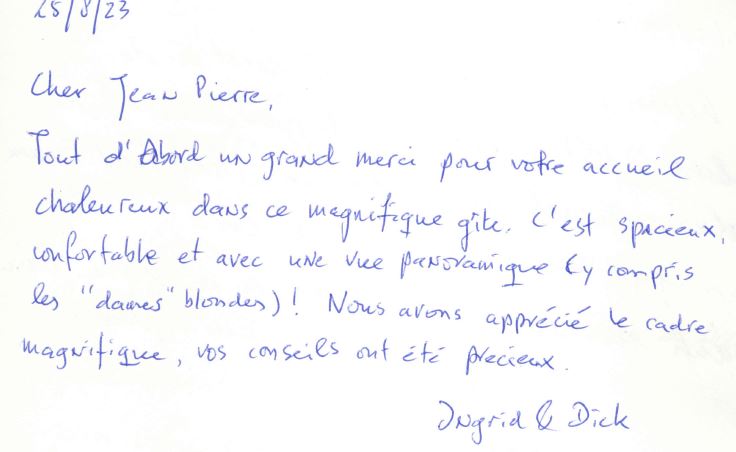 25/8/23
Cher Jean Pierre,
Tout d'Abord un grand merci pour votre accueil
chaleureux dans ce magnifique gîte. C'est spacieux,
confortable et avec une vue panoramique (y compris
les "dames" blondes)! Nous avons apprécié le cadre
magnifique, vos conseils ont été precieux.
Ingrid & Dick